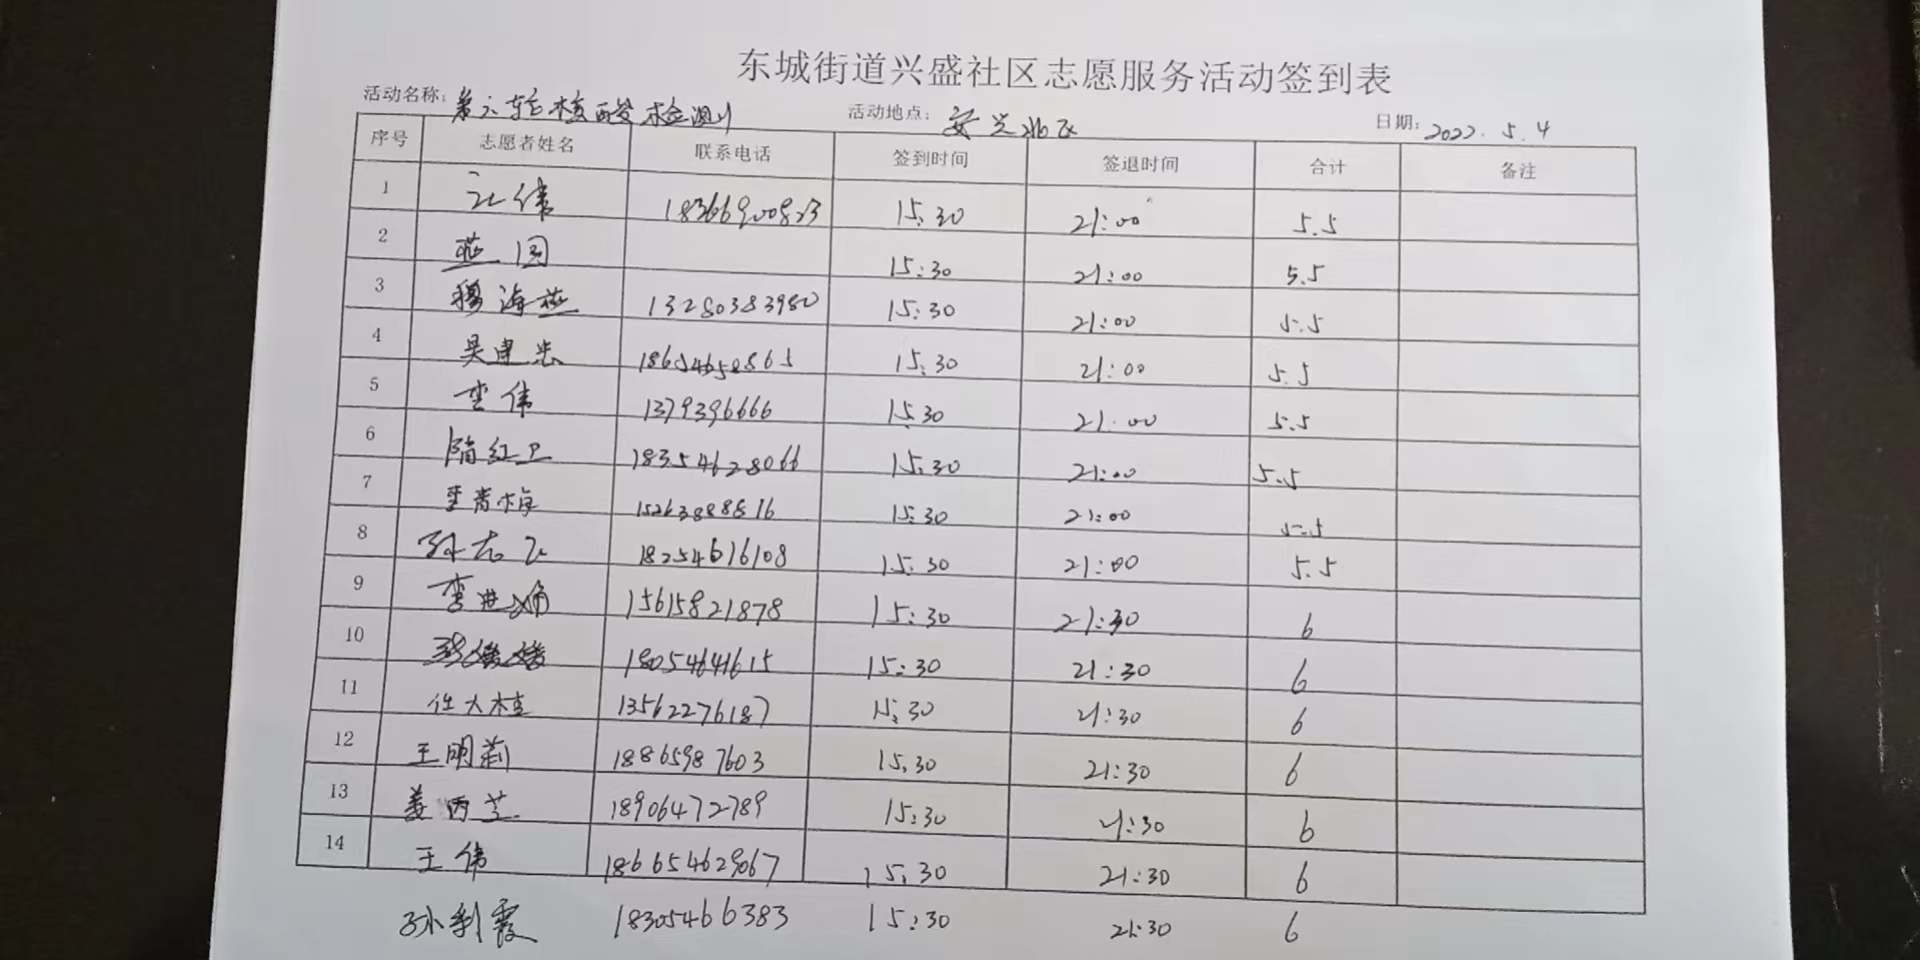 东城街道兴盛社区志愿服务活动签到表
活动名称: 第六轮核酸检测 活动地点: 安兴北区 日期: 2022.5.4
序号 志愿者姓名 联系电话 签到时间 签退时间 合计 备注
1 18366900823 15:30 21:00 5.5
2 燕园 15:30 21:00 5.5
3 穆海燕 13280383980 15:30 21:00 5.5
4 吴建忠 18654650865 15:30 21:00 5.5
5 李伟 1379396666 15:30 21:00 5.5
6 隋红卫 18354628066 15:30 21:00 5.5
7 李青梅 15263888816 15:30 21:00 5.5
8 18254616108 15:30 21:00 5.5
9 15615821878 15:30 21:30 6
10 18054641615 15:30 21:30 6
11 任大桂 13562276187 15:30 21:30 6
12 王明莉 18865987603 15:30 21:30 6
13 姜西芝 18906472789 15:30 21:30 6
14 王伟 186654629067 15:30 21:30 6
孙利霞 18305466383 15:30 21:30 6